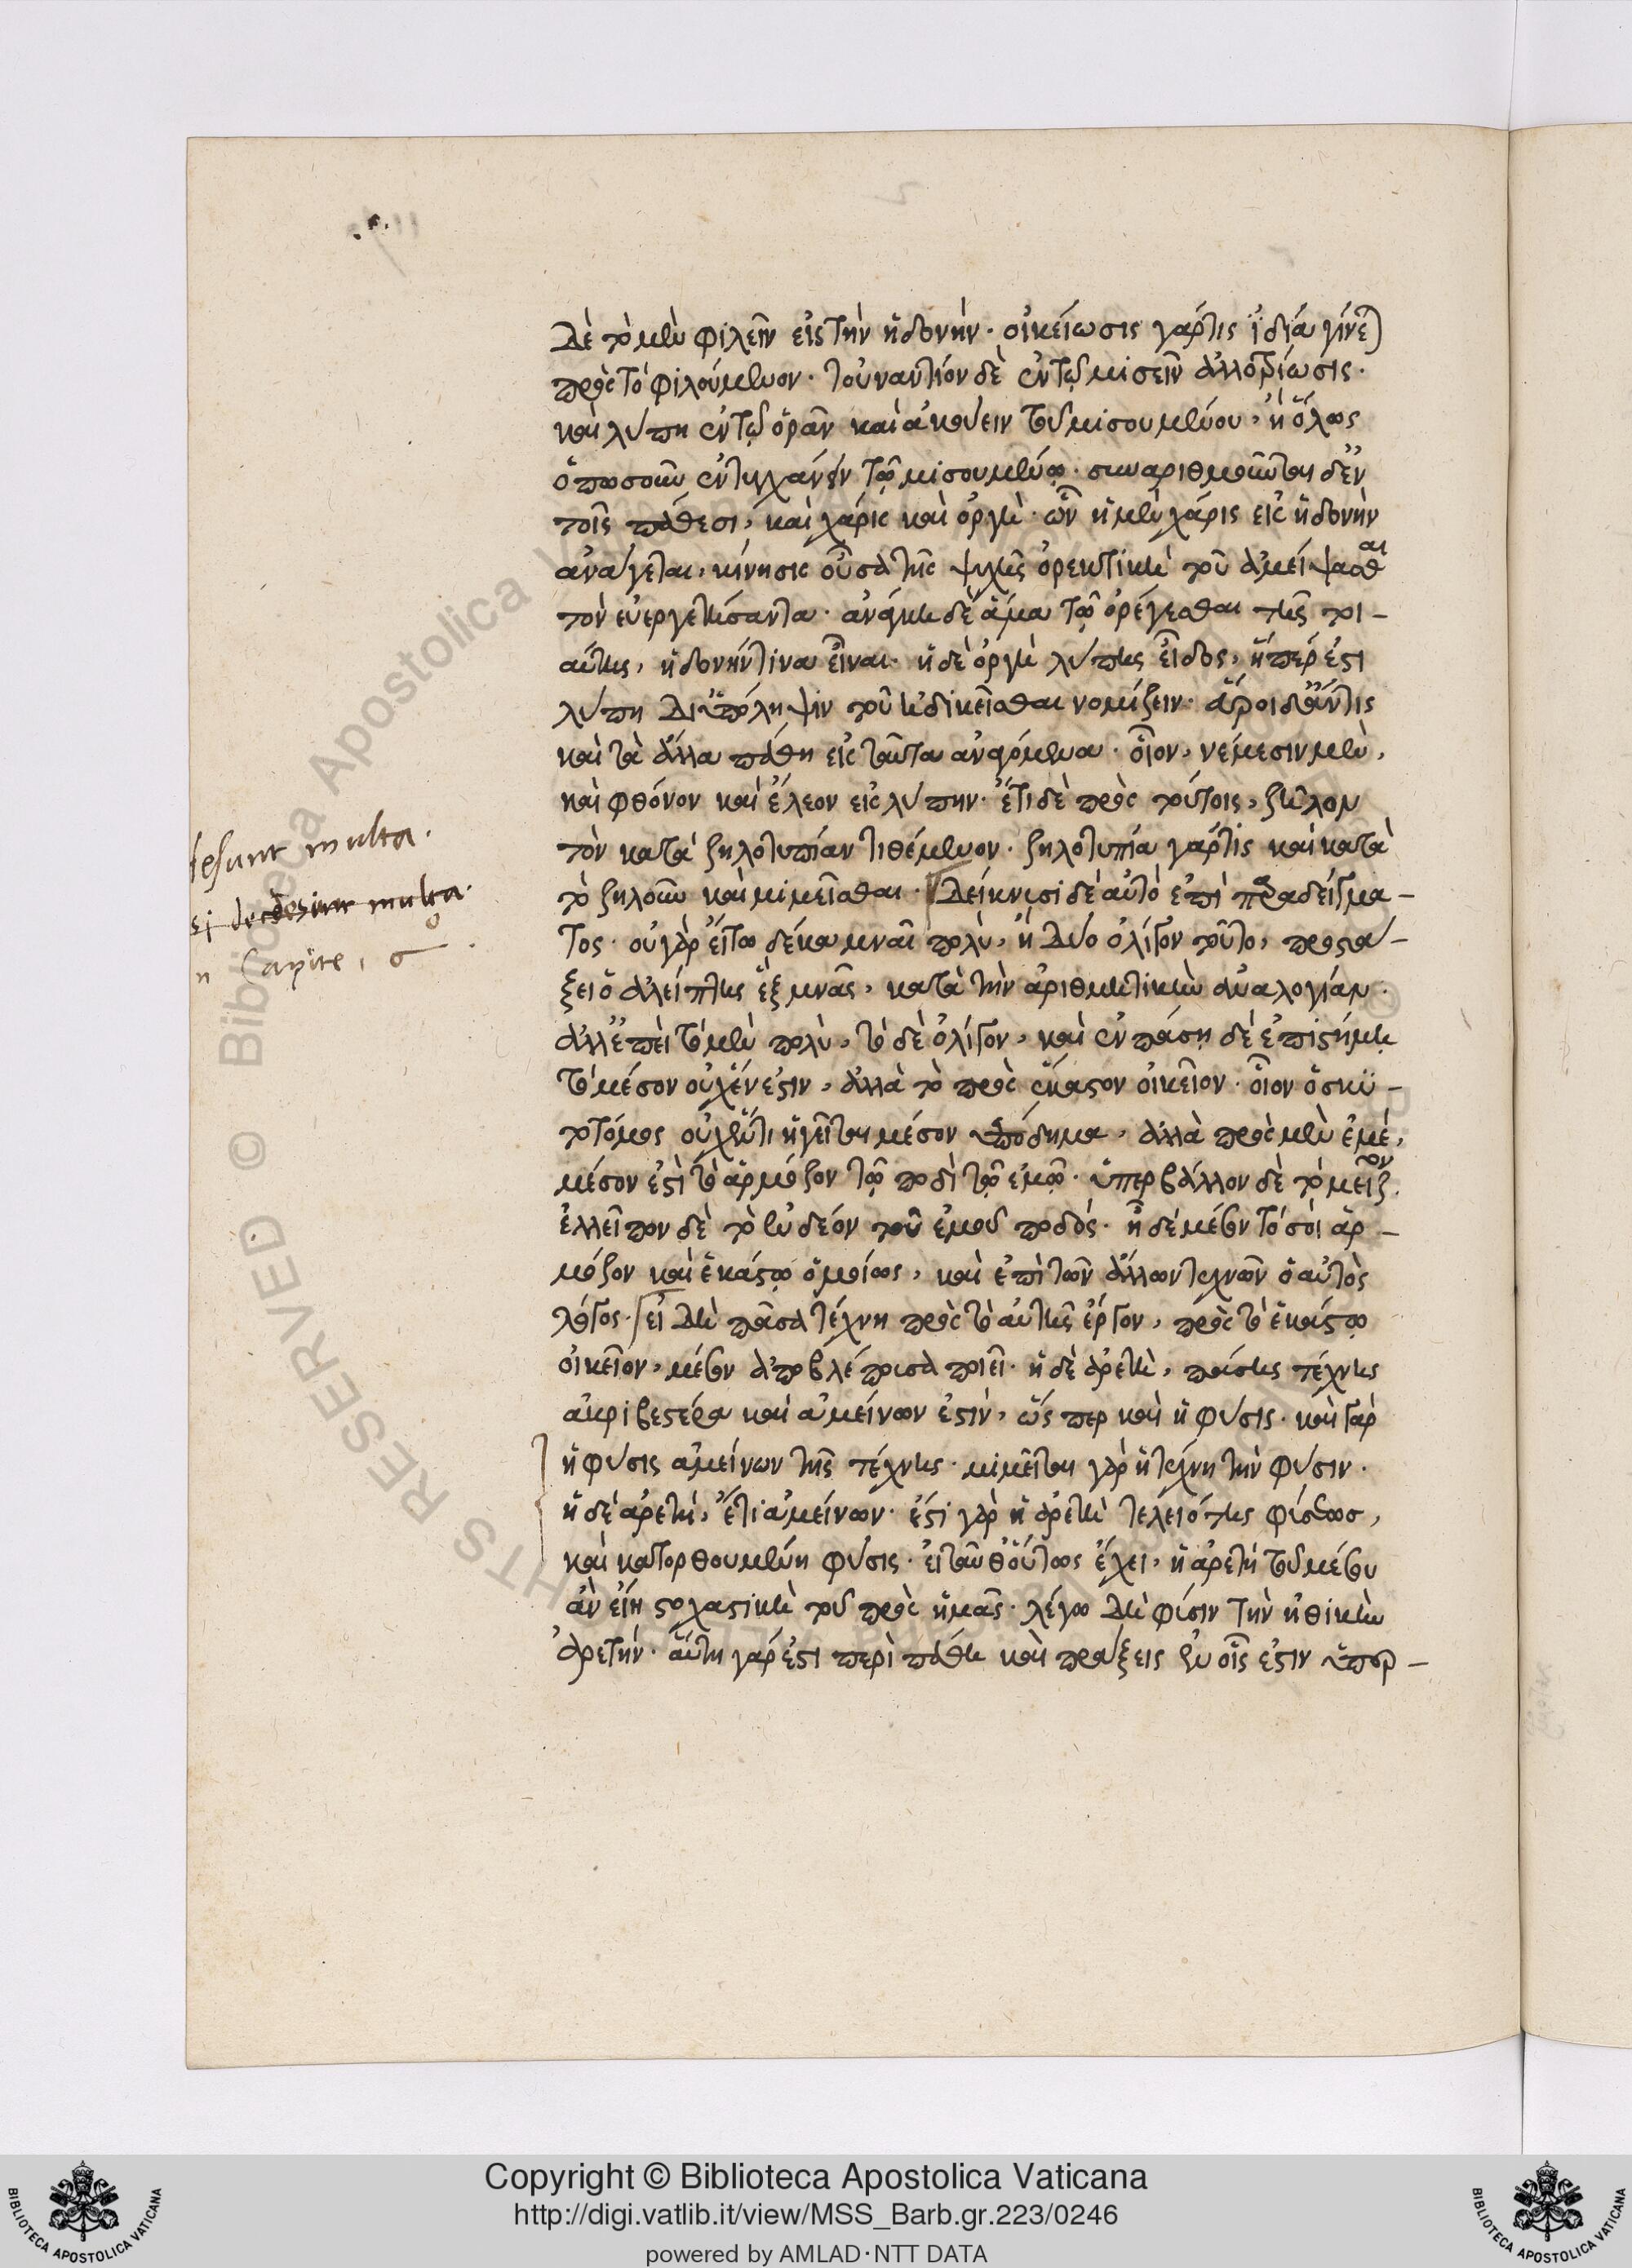 δὲ τὸ μὲν φιλεῖν εἰς τὴν ἡδονήν· οἰκείωσις γάρ τις ἰδία γίνε)
πρὸς τὸ φιλούμενον· τοὐναντίον δὲ ἐν τῷ μισεῖν ἀλλοτρίωσις·
καὶ λύπη ἐν τῷ ὁρᾶν καὶ ἀκούειν τοῦ μισουμένου, ἢ ὅλως
ὁπωσοῦν ἐντυγχάνειν τῷ μισουμένῳ· συναριθμοῦνται δ' ἐν
τοῖς πάθεσι, καὶ χάρις καὶ ὀργή· ὧν ἡ μὲν χάρις εἰς ἡδονὴν
ἀνάγεται, κίνησις οὖσα τῆς ψυχῆς ὀρεκτικὴ τοῦ ἀμείψασθαι
τὸν εὐεργετήσαντα· ἀνάγκη δὲ ἅμα τῷ ὀρέγεσθαι τῆς τοι-
αύτης, ἡδονήν τινα εἶναι· ἡ δὲ ὀργὴ λύπης εἶδος, ἥπερ ἐστὶ
λύπη δι' ὑπόληψιν τοῦ ἠδικεῖσθαι νομίζειν· εὕροι δ' ἄν τις
καὶ τὰ ἄλλα πάθη εἰς ταῦτα ἀναγόμενα· οἷον, νέμεσιν μὲν,
καὶ φθόνον καὶ ἔλεον εἰς λύπην· ἔτι δὲ πρὸς τούτοις, ζῆλον
τὸν κατὰ ζηλοτυπίαν τιθέμενον· ζηλοτυπία γάρ τις καὶ κατὰ
τὸ ζηλοῦν καὶ μιμεῖσθαι· δείκνυσι δὲ αὐτὸ ἐπὶ παραδείγμα-
τος· οὐ γὰρ εἴ τῳ δέκα μναῖ πολὺ, ἢ δύο ὀλίγον τοῦτο, προστά-
ξει ὁ ἀλείπτης ἓξ μνᾶς, κατὰ τὴν ἀριθμητικὴν ἀναλογίαν·
ἀλλ' ἐπεὶ τὸ μὲν πολὺ, τὸ δὲ ὀλίγον, καὶ ἐν πάσῃ δὲ ἐπιστήμῃ
τὸ μέσον οὐχ ἕν ἐστιν, ἀλλὰ τὸ πρὸς ἕκαστον οἰκεῖον· οἷον ὁ σκυ-
τοτόμος οὐχ ἕν τι ἡγεῖται μέσον ὑπόδημα, ἀλλὰ πρὸς μὲν ἐμὲ,
μέσον ἐστὶ τὸ ἁρμόζον τῷ ποδὶ τῷ ἐμῷ· ὑπερβάλλον δὲ τὸ μεῖζον.
ἐλλεῖπον δὲ τὸ ἐνδεόν τοῦ ἐμοῦ ποδός· ἤδη δὲ μέσον τὸ σοὶ ἁρ-
μόζον καὶ ἑκάστῳ ὁμοίως, καὶ ἐπὶ τῶν ἄλλων τεχνῶν ὁ αὐτὸς
λόγος· εἰ δὴ πᾶσα τέχνη πρὸς τὸ αὐτῆς ἔργον, πρὸς τὸ ἑκάστῳ
οἰκεῖον, μέσον ἀποβλέπουσα ποιεῖ· ἡ δὲ ἀρετὴ, πάσης τέχνης
ἀκριβεστέρα καὶ ἀμείνων ἐστὶν, ὥσπερ καὶ ἡ φύσις· καὶ γὰρ
ἡ φύσις ἀμείνων τῆς τέχνης· μιμεῖται γὰρ ἡ τέχνη τὴν φύσιν·
ἡ δὲ ἀρετὴ, ἔτι ἀμείνων· ἐστὶ γὰρ ἡ ἀρετὴ τελειότης φύσεως,
καὶ κατορθουμένη φύσις· εἰ ταῦθ' οὕτως ἔχει, ἡ ἀρετὴ τοῦ μέσου
ἂν εἴη στοχαστικὴ τοῦ πρὸς ἡμᾶς· λέγω δὴ φύσιν τὴν ἠθικὴν
ἀρετήν· αὕτη γάρ ἐστι περὶ πάθη καὶ πράξεις ἐν οἷς ἐστὶν ὑπερ-
desunt multa.
desunt multa.
Capite, 6
Copyright © Biblioteca Apostolica Vaticana
http://digi.vatlib.it/view/MSS_Barb.gr.223/0246
powered by AMLAD·NTT DATA
BIBLIOTECA APOSTOLICA VATICANA
BIBLIOTECA APOSTOLICA VATICANA